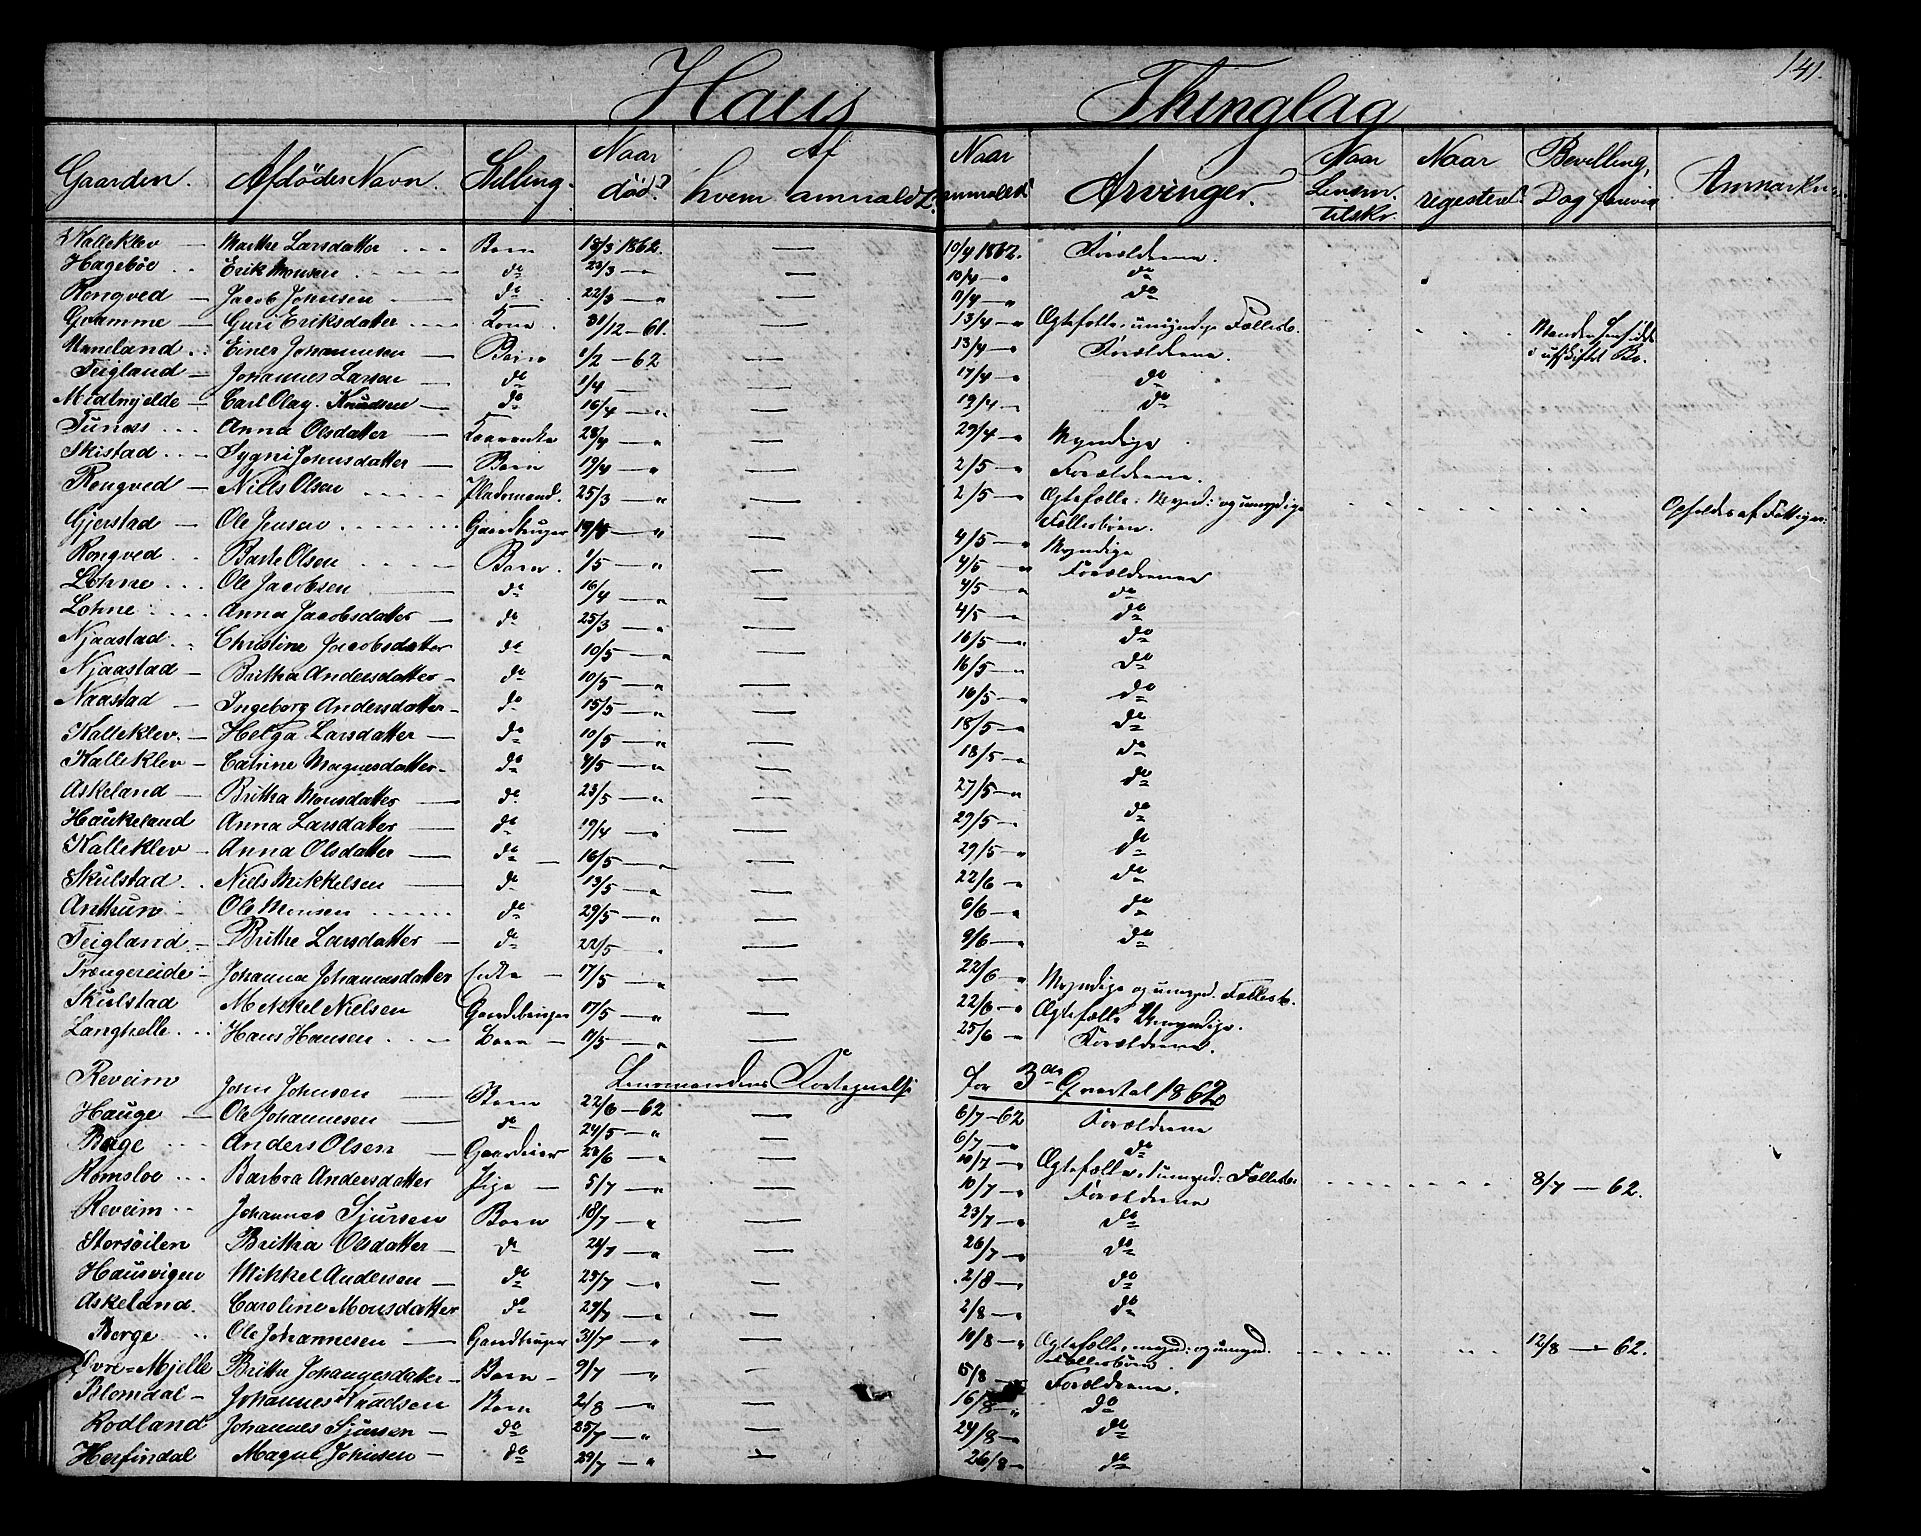 141.
Haus Thinglag
Gaarden. Afdødes Navn. Stilling. Naar død? Af hvem anmeldt? Naar anmeldt? Arvinger. Naar Lensm. tilskr. Naar regesteret Bevilling, Dag forevist Anmærkn.
Kalleklev — Marthe Larsdatter Barn 13/3 1862. — 10/4 1862. Forældrene.
Hagebøe Erik Monsen do 23/3 — " — 10/4 — " do
Rongved — Jacob Johnsen — do 22/3 — " — 11/4 — " do
Gramme — Guri Eriksdatter Kone 31/12 — 61. — 13/4 — " Ægtefælle, umyndige Fællesb. Manden hensidder i uskiftet Bo.
Unneland Einer Johannesen — Barn 1/2 — 62 — 13/4 — " Forældrene.
Teigland — Johannes Larsen — do 1/4 — — 17/4 — " do
Midtmjelde — Carl Olay Knudsen — do 16/4 — " — 19/4 — do
Tunæs Anna Olsdatter — 28/4 — " — 29/4 — " Myndige
Skistad Sygni Johnsdatter — Barn 19/4 — " — 2/5 — " Forældrene.
Rongved — Nills Olsen Pladsmand. 25/3 — " — 2/5 — " Ægtefælle, Mynd: og umyndige Fællesbörn. Opholdes af Fattigv:
Gjerstad — Ole Jensen Gaardbruger 19/4 — " — 4/5 — " Myndige
Rongved Barte Olsen Barn 1/5 — " — 4/5 — " Forældrenes
Lohne Ole Jacobsen do 16/4 — " — 4/5 — " do
Lohne Anna Jacobsdatter — do 25/3 — " — 4/5 — " do
Njaastad Christine Jacobsdatter do 10/5 — " — 16/5 — " do
Njaastad — Brithe Andersdatter — do 10/5 — " — 16/5 — " do
Naastad — Ingeborg Andersdatter — do 15/5 — " — 16/5 — " do
Kalleklev — Helga Larsdatter — do 10/5 — " — 18/5 — " do
Kalleklev — Cathine Magnesdatter — do 4/5 — " — 18/5 — " do
Askeland — Britha Monsdatter — do 23/5 — " — 27/5 — " do
Haukeland Anna Larsdatter — do 19/4 — " — 29/5 — " do
Kalleklev — Anna Olsdatter — do — 16/5 — " — 29/5 — " do
Skulstad Niels Mikkelsen — do 13/5 — " — 22/6 — " do
Anthun Ole Monsen do 29/5 — " — 6/6 — " do
Teigland — Brithe Larsdatter — do 22/5 — " — 9/6 — " do
Trængereide — Johanna Johannesdatter Enke — 17/5 — " — 22/6 — " Myndige og umynd. Fællesb.
Skulstad Mikkel Nielsen Gaardbruger 17/5 — " — 22/6 — " Ægtefælle Umyndige.
Langhelle Hans Hansen Barn — 11/5 — " — 25/6 — " Forældrene.
Lensmandens Fortegnelse for 3die Qvartal 1862
Reveim John Johnsen — Barn 22/6 — 62 — 6/7 — 62 Forældrene
Hauge — Ole Johannesen — do 24/5 — " — 6/7 — " do
Bøge Anders Olsen — Gaardeier 22/6 — " — 10/7 — " Ægtefælle, umynd: Fællesb: 8/7 — 62.
Romsloe Barbra Andersdatter Pige — 5/7 — " — 10/7 — " Forældrene
Reveim Johannes Sjursen Barn 18/7 — " — 23/7 — " do
Storsøilen Britha Olsdatter — do 24/7 — " — 26/7 — " do
Hausvigen Mikkel Andersen — do 25/7 — " — 2/8 — " do
Askeland. Caroline Monsdatter do 29/7 — " — 2/8 — " do
Borge Ole Johannesen — Gaardbruger 31/7 — " — 10/8 — " Ægtefælle, mynd: og umynd. Fællesbörn. 12/8 — 62.
Øvre-Mjelle Brithe Johannesdatter — Barn — 9/7 — " — 5/8 — Forældrene.
Blomdal — Johannes Knudsen Barn 2/8 — " — 16/8 — " do
Rodland Johannes Sjursen — do 25/7 — " — 24/8 — " do
Herfindal Magne Johnsen — do 29/7 — " — 26/8 — do